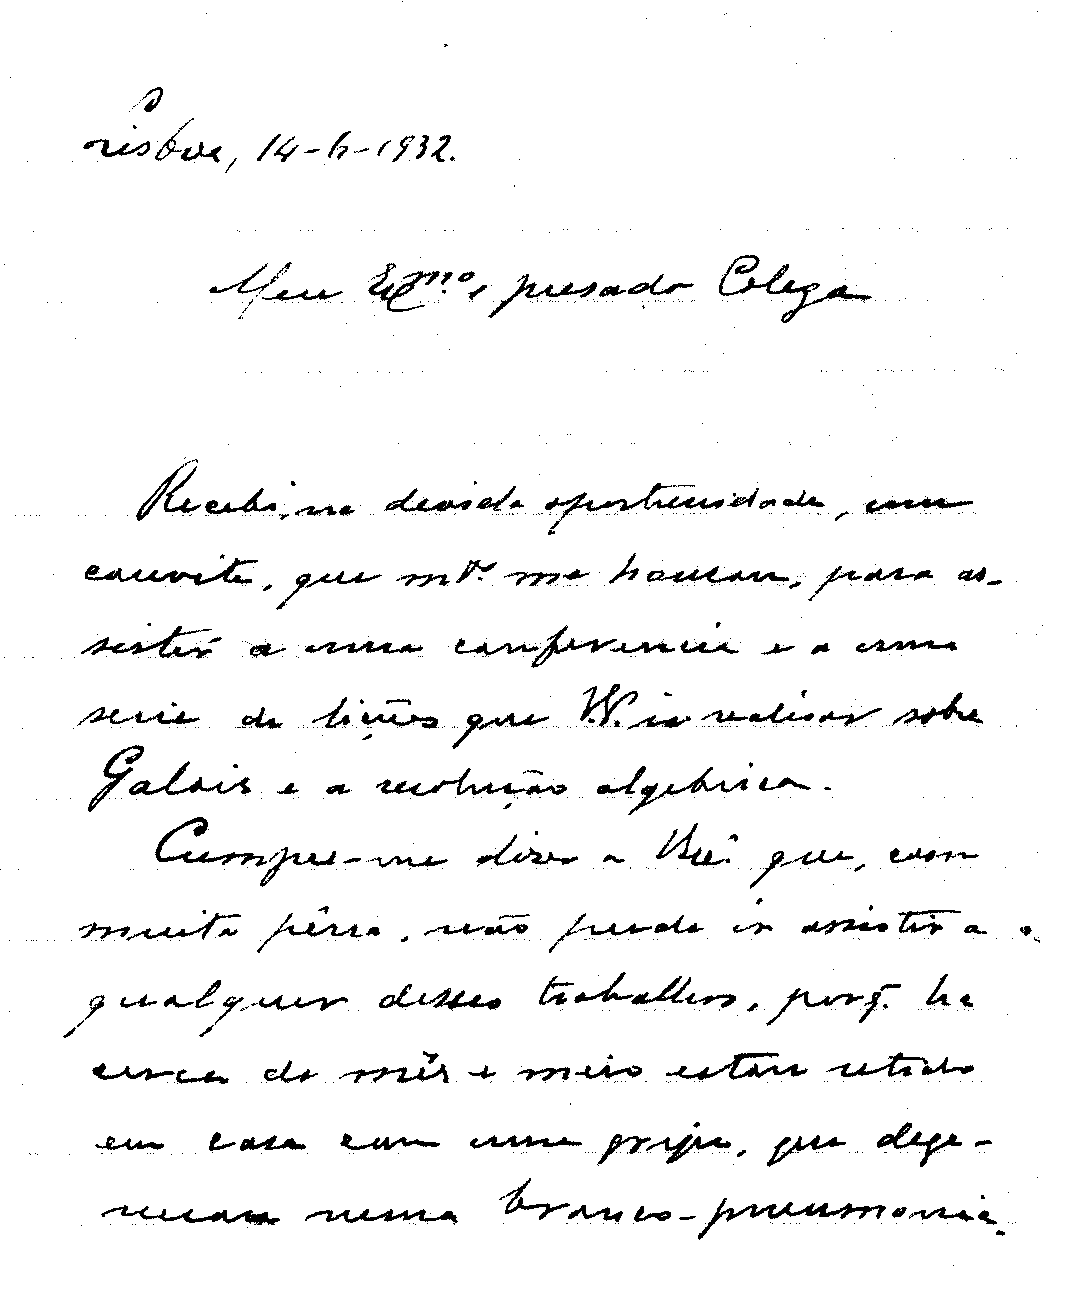 Lisboa, 14-6-1932.
Meu Exmo. e presado Colega
Recebi, na devida oportunidade, um
convite, que mto. me honrou, para as-
sistir a uma conferencia e a uma
serie de lições que V. ia realisar sobre
Galois e a resolução algebrica.
Cumpre-me dizer a que, com
muita pêna, não pude ir assistir a
qualquer desses trabalhos, porq. ha
cerca de mês e meio estou retido
em casa com uma gripe, que dege-
nerou numa bronco-pneumonia.